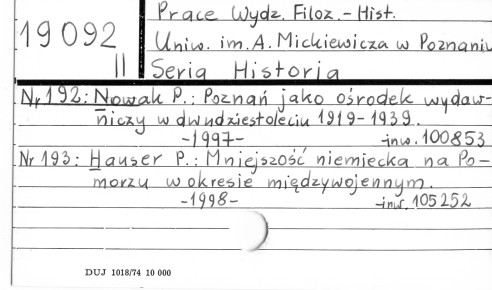 Prace Wydz. Filoz. - Hist.
19092
Uniw. im. A. Mickiewicza w Poznaniu
II
Seria Historia
Nr 192: Nowak P.: Poznań jako ośrodek wydaw-
niczy w dwudziestoleciu 1919-1939.
-1997- inw. 100853
Nr 193: Hauser P.: Mniejszość niemiecka na Po-
morzu w okresie międzywojennym.
-1998- inw. 105252
DUJ 1018/74 10 000